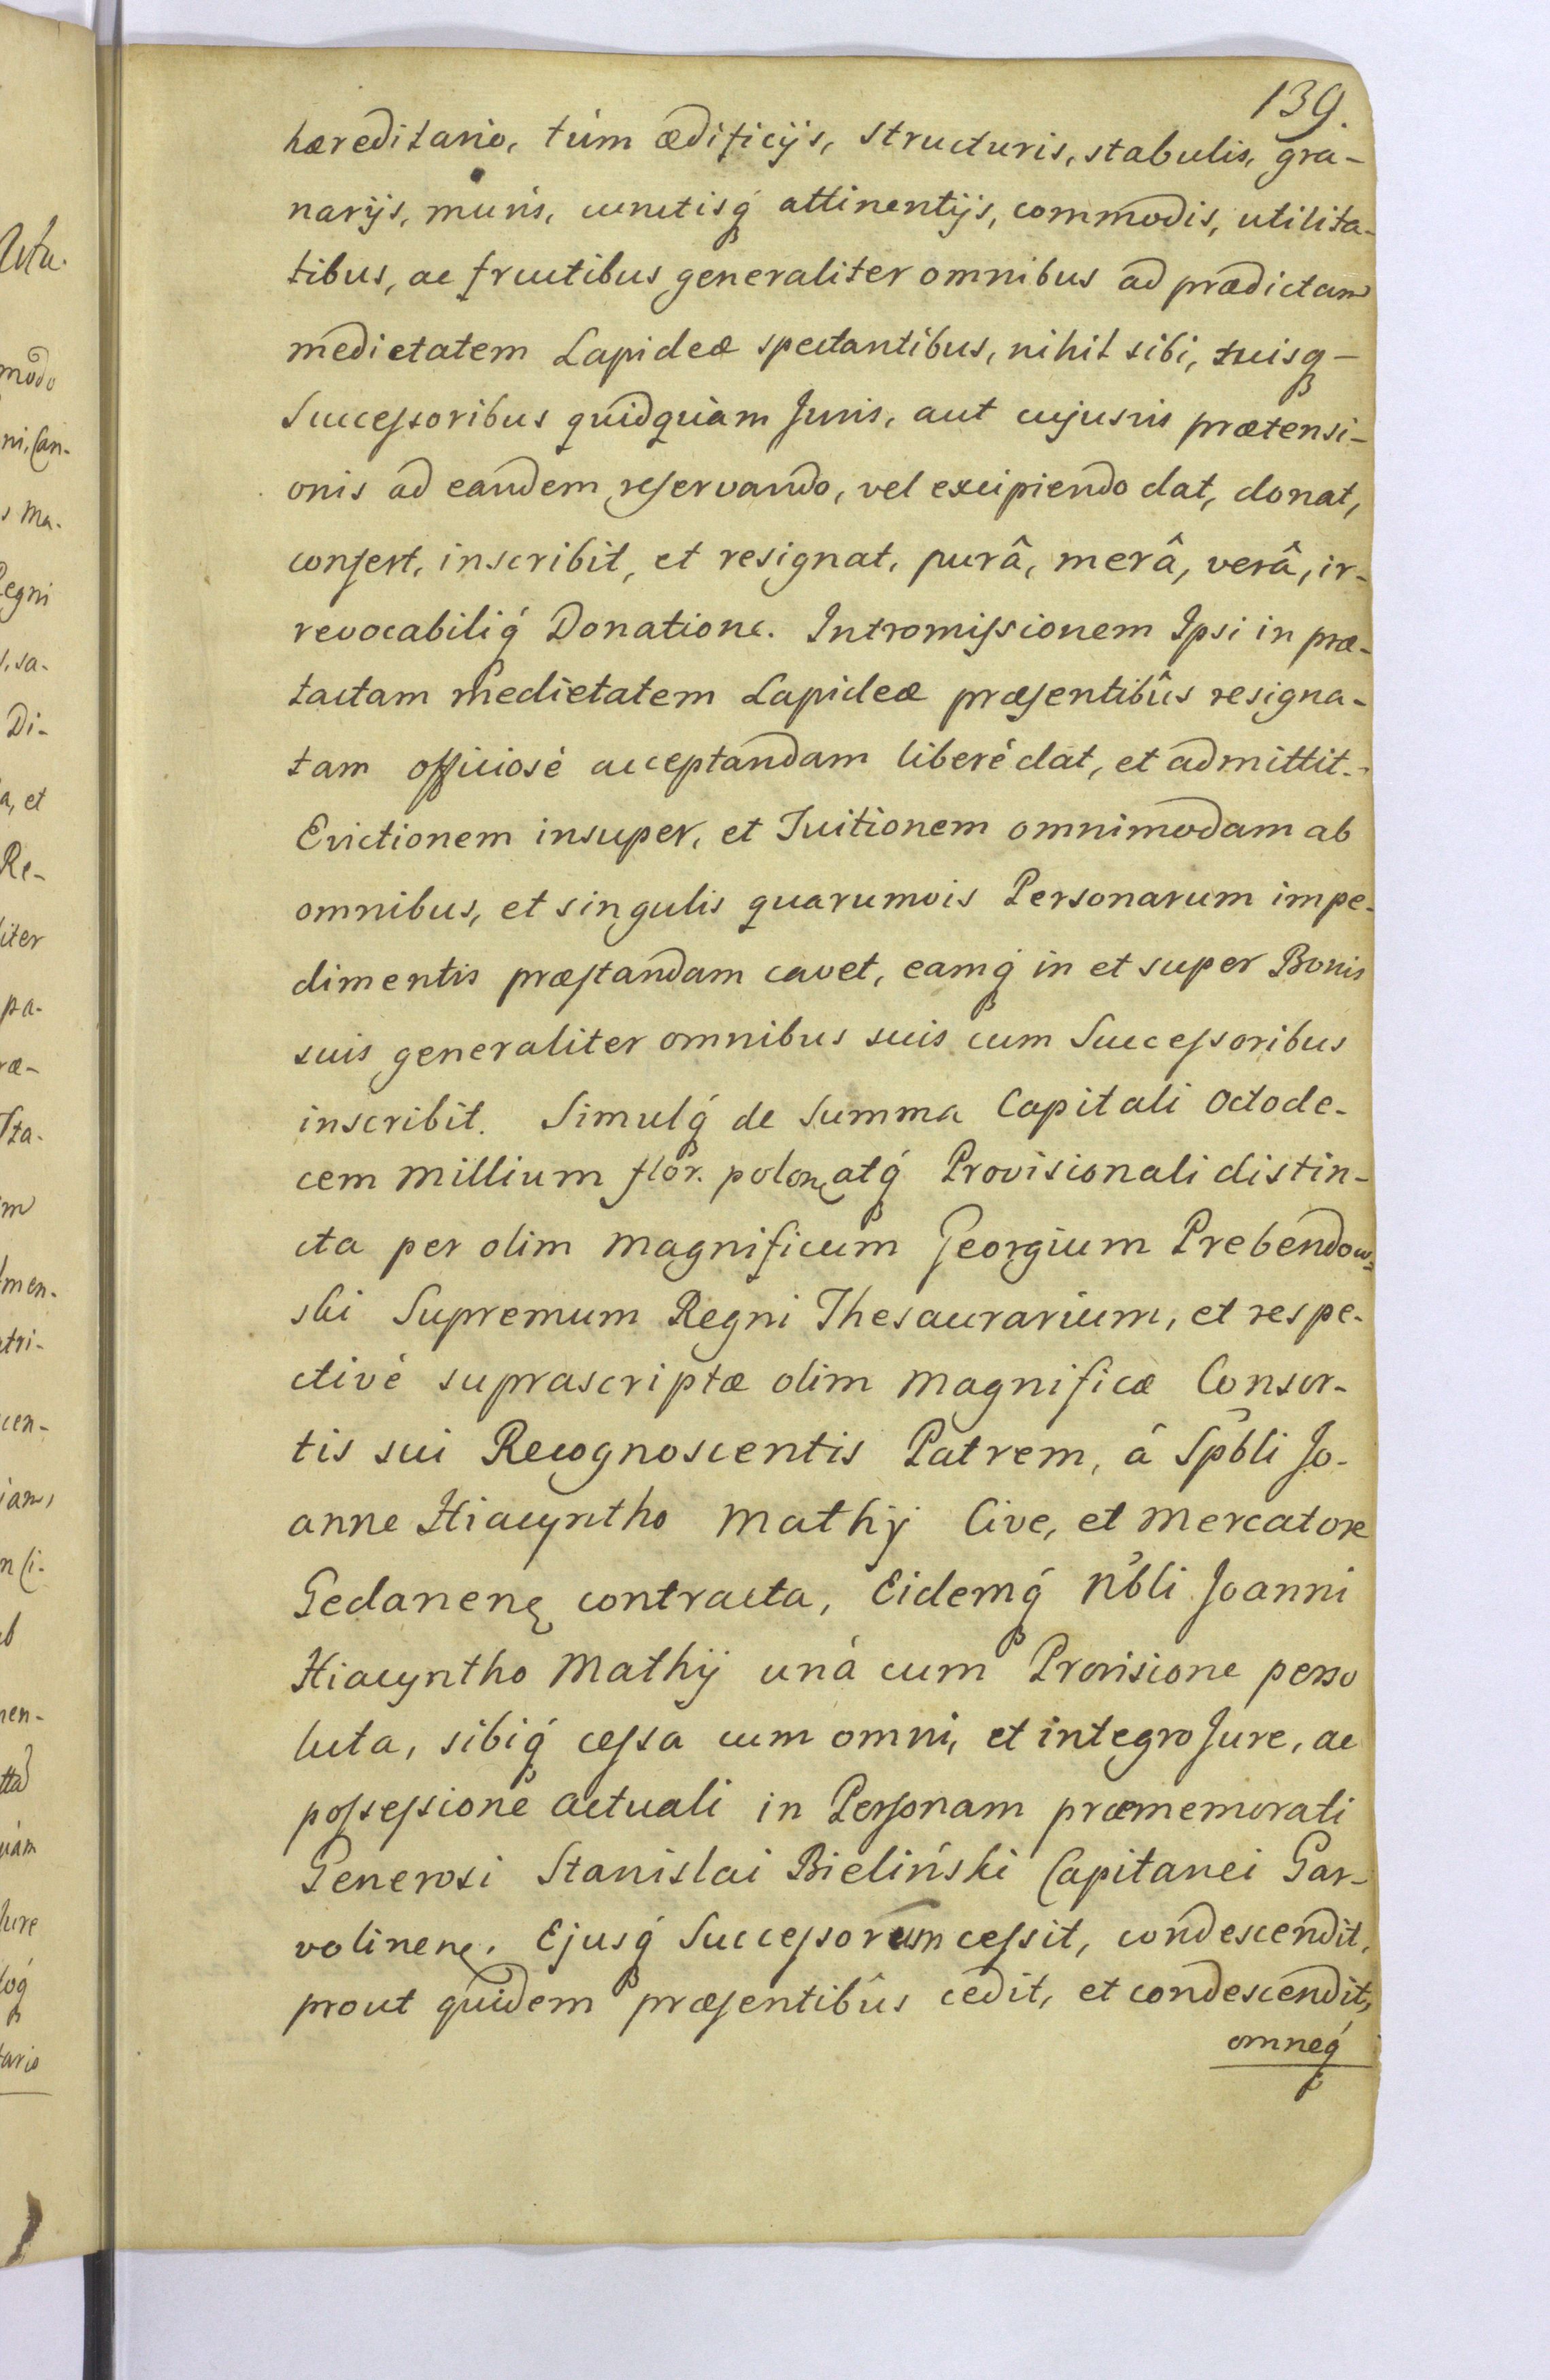 139.
hæreditario, tùm ædificijs, structuris, stabulis, gra-
narijs, muris, cunctisq́ attinentijs, commodis, utilita-
tibus, ac fructibus generaliter omnibus ad prædictam
medietatem Lapideæ spectantibus, nihil sibi, suisq-
Successoribus quidquam Juris, aut cujusvis prætensi-
onis ad eandem reservando, vel excipiendo dat, donat,
confert, inscribit, et resignat, purâ, merâ, verâ, ir-
revocabiliq́ Donatione. Intromissionem Ipsi in præ-
tactam medietatem Lapideæ præsentibûs resigna-
tam officiosè acceptandam liberè dat, et admittit.-
Evictionem insuper, et Tuitionem omnimodam ab
omnibus, et singulis quarumvis Personarum impe-
dimentis præstandam cavet, eamq́ in et super Bonis
suis generaliter omnibus suis cum Successoribus
inscribit. Simulq́ de Summa Capitali Octode-
cem millium flor. polon. atq́ Provisionali distin-
cta per olim Magnificum Georgium Prebendow-
ski Supremum Regni Thesaurarium, et respe-
ctivè suprascriptæ olim Magnificæ Consor-
tis sui Recognoscentis Patrem, â Spbli Jo-
anne Hiacyntho Mathÿ Cive, et Mercatore
Gedanen. contracta, Eidemq́ Nbli Joanni
Hiacyntho Mathij unà cum Provisione perso
luta, sibiq́ cessa cum omni, et integro Jure, ac
possessione actuali in Personam præmemorati
Generosi Stanislai Bieliński Capitanei Gar-
volinen. Ejusq́ Successorum cessit, condescendit,
prout quidem præsentibûs cedit, et condescendit,
omneq́